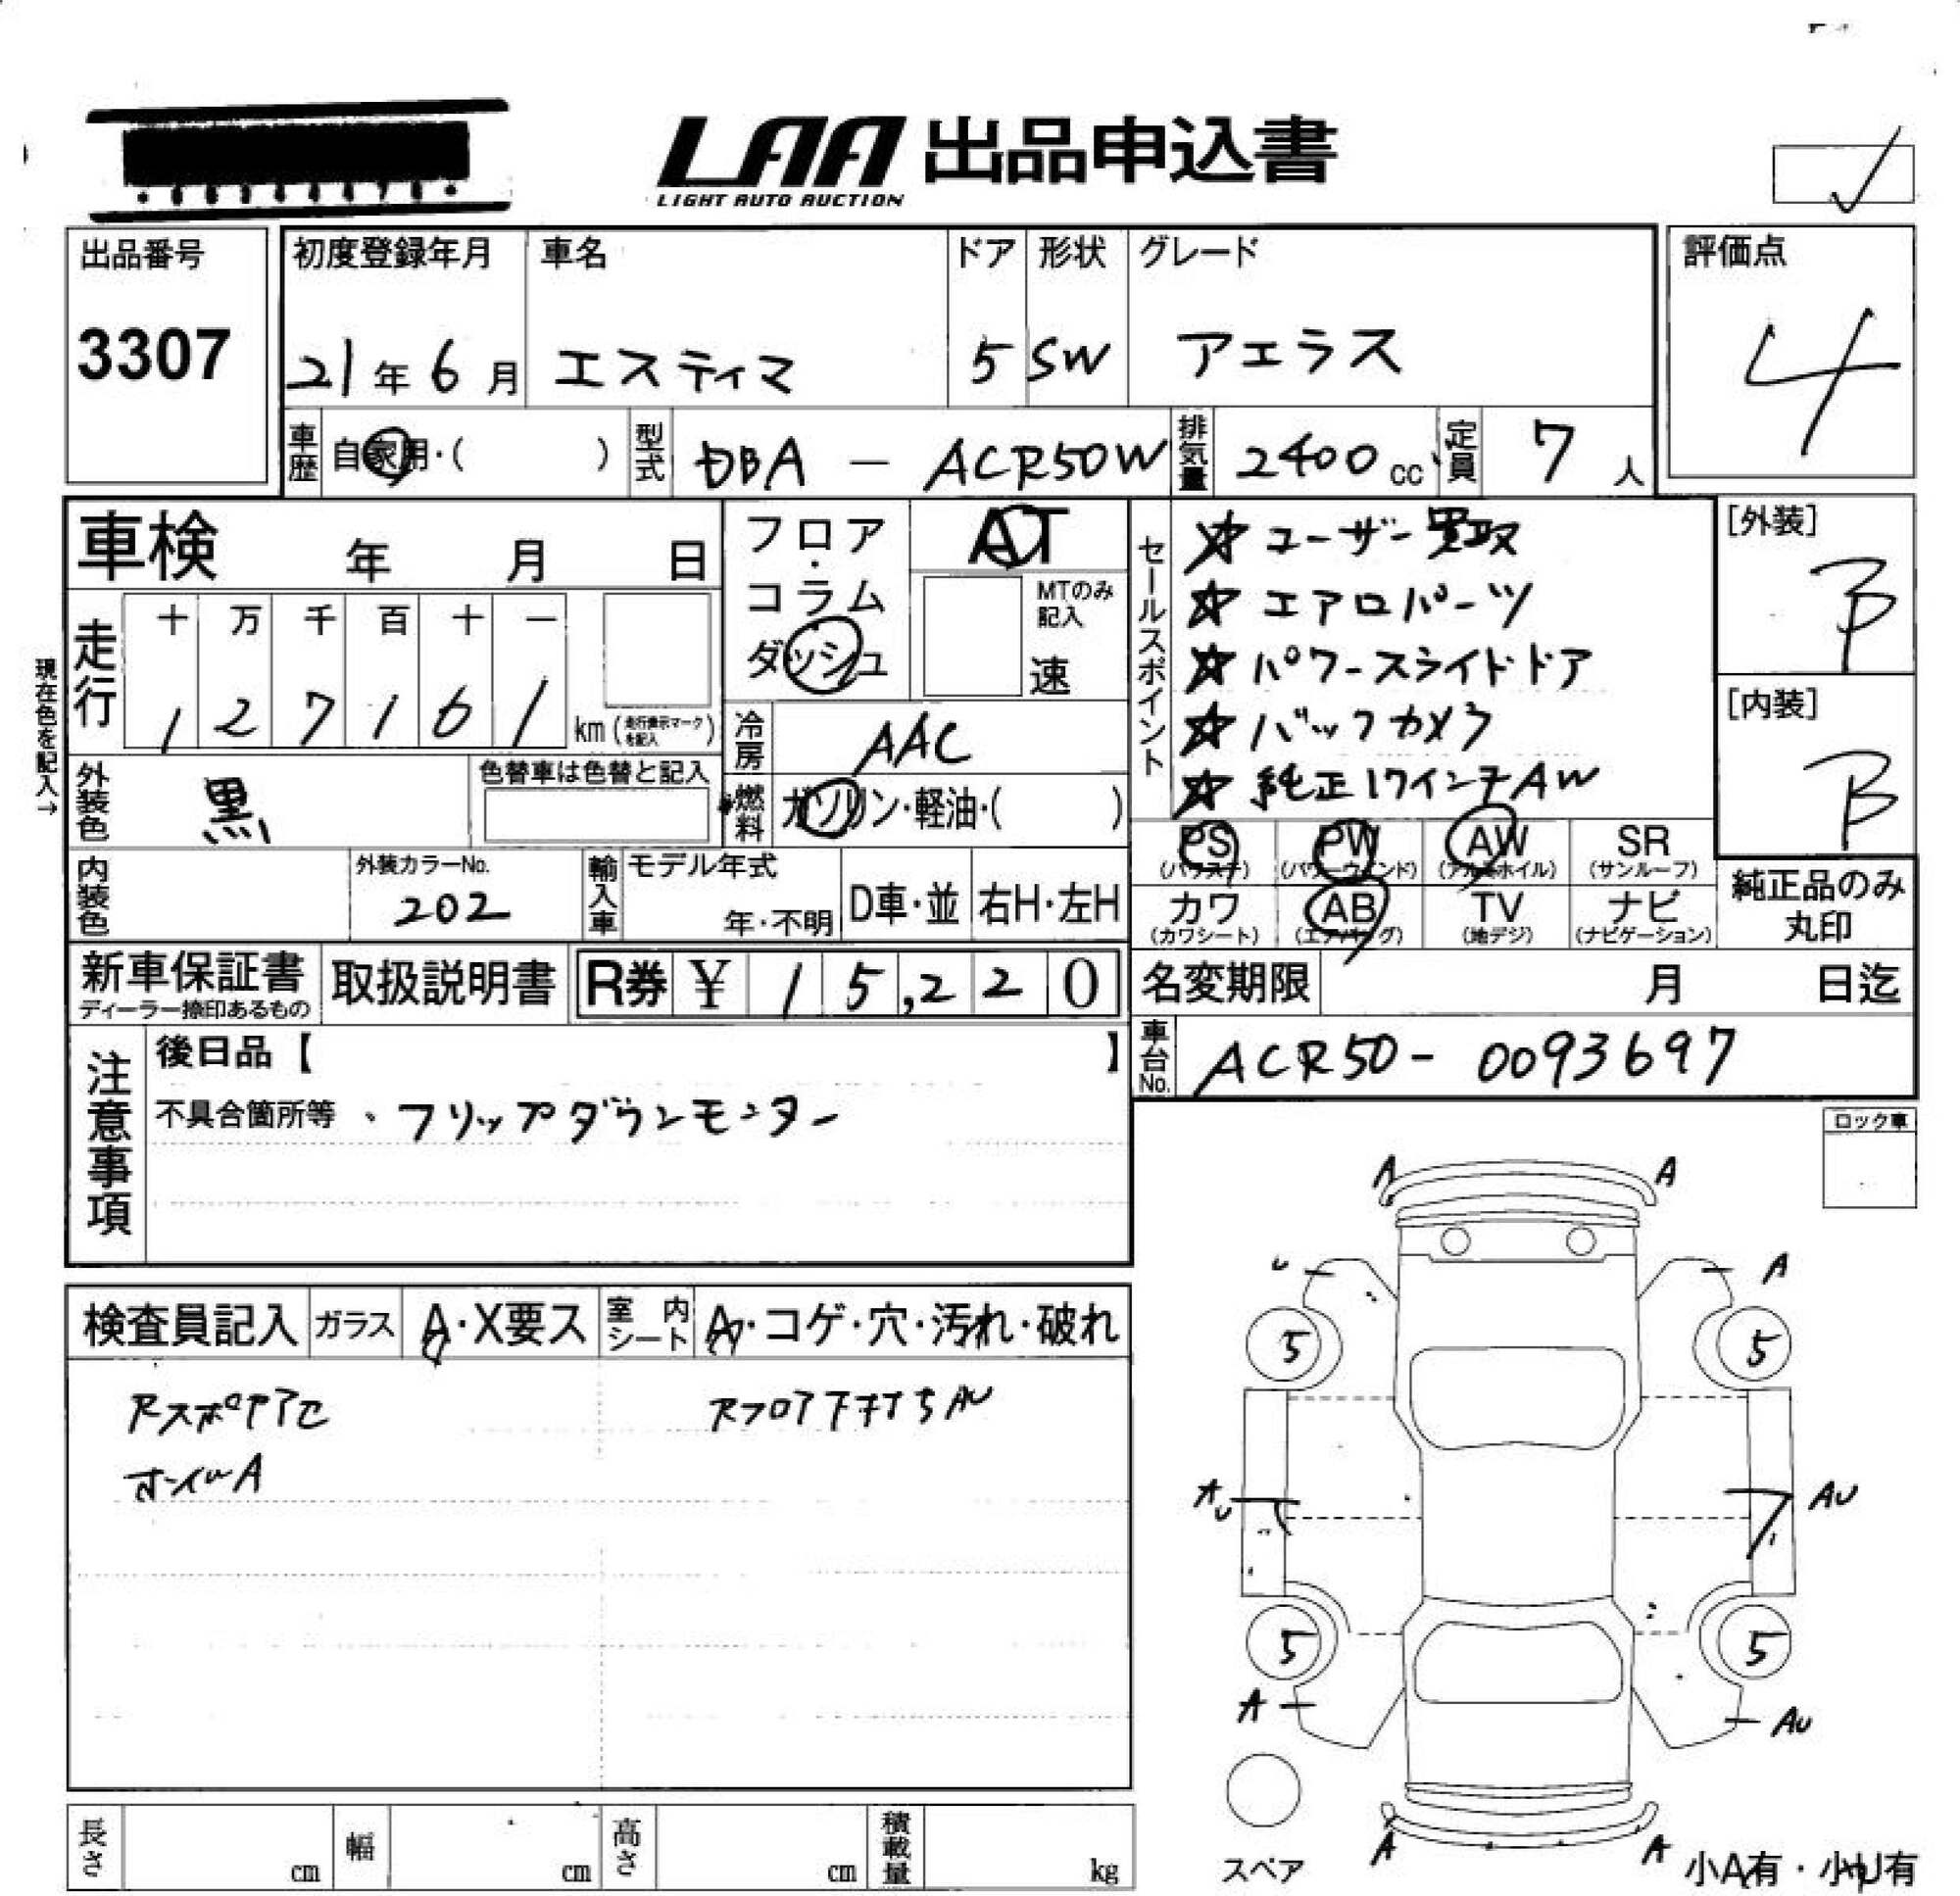 LAA 出品申込書
LIGHT AUTO AUCTION
出品番号
3307
初度登録年月
21年6月
車名
エスティマ
ドア
5
形状
SW
グレード
アエラス
評価点
4
車歴 自家用・( )
型式 DBA - ACR50W
排気量 2400cc
定員 7人
車検 年 月 日
走行
十 万 千 百 十 一
1 2 7 1 6 1 km (走行表示マークを記入)
現在色を記入→
フロア・コラム
ダッシュ
AT
MTのみ記入
速
冷房 AAC
燃料 ガソリン・軽油・( )
セールスポイント
☆ ユーザー買取
☆ エアロパーツ
☆ パワースライドドア
☆ バックカメラ
☆ 純正17インチAW
[外装]
B
[内装]
B
外装色 黒
色替車は色替と記入
内装色
外装カラーNo.
202
輸入車
モデル年式
年・不明
D車・並
右H・左H
PS (パワステ)
PW (パワーウィンド)
AW (アルミホイル)
SR (サンルーフ)
カワ (カワシート)
AB (エアバッグ)
TV (地デジ)
ナビ (ナビゲーション)
純正品のみ丸印
新車保証書
ディーラー捺印あるもの
取扱説明書
R券 ¥ 15,220
名変期限 月 日迄
車台No. ACR50-0093697
注意事項
後日品【 】
不具合箇所等、フリップダウンモニター
ロック車
検査員記入
ガラス A・X要ス
室内シート A・コゲ・穴・汚れ・破れ
ホイルA
A A
U A
5 5
AU AU
5 5
A AU
A A
スペア
小A有・小U有
長さ cm
幅 cm
高さ cm
積載量 kg